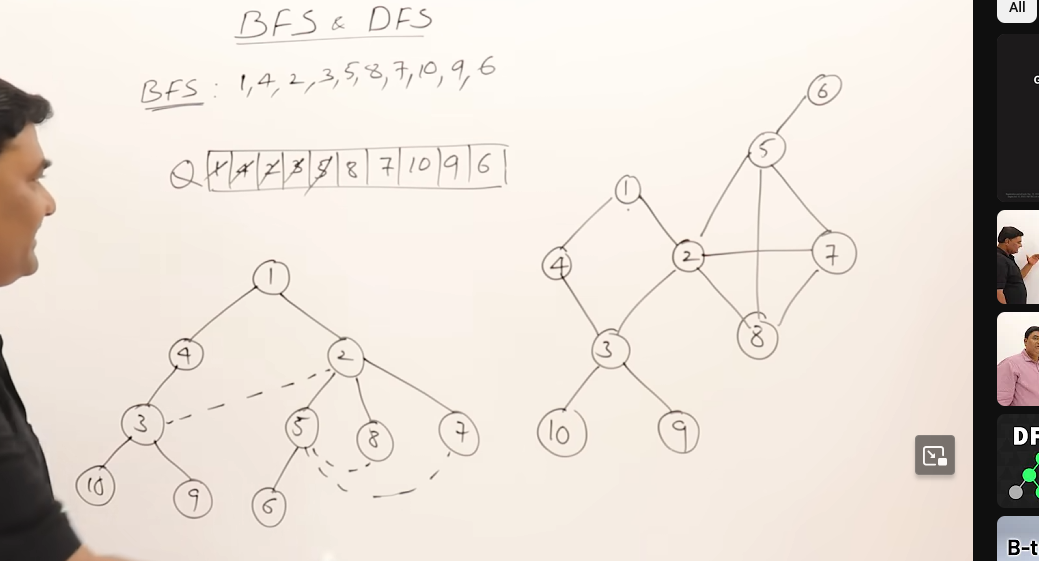 BFS & DFS
BFS : 1, 4, 2, 3, 5, 8, 7, 10, 9, 6
Q 1 4 2 3 5 8 7 10 9 6
1
4 2
3 5 8 7
10 9 6
6
5
1
4 2 7
3 8
10 9
All
G
DF
B-t